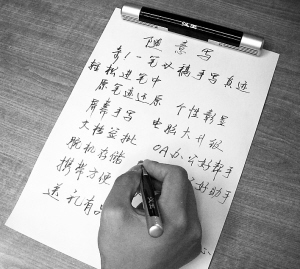 随意写
一笔 手写真迹
轻松 笔中
原笔迹还原
屏幕手写 个性彰显
文档签批 电脑大升级
脱机存储 OA办公好帮手
携带方便 好助手
送礼有品